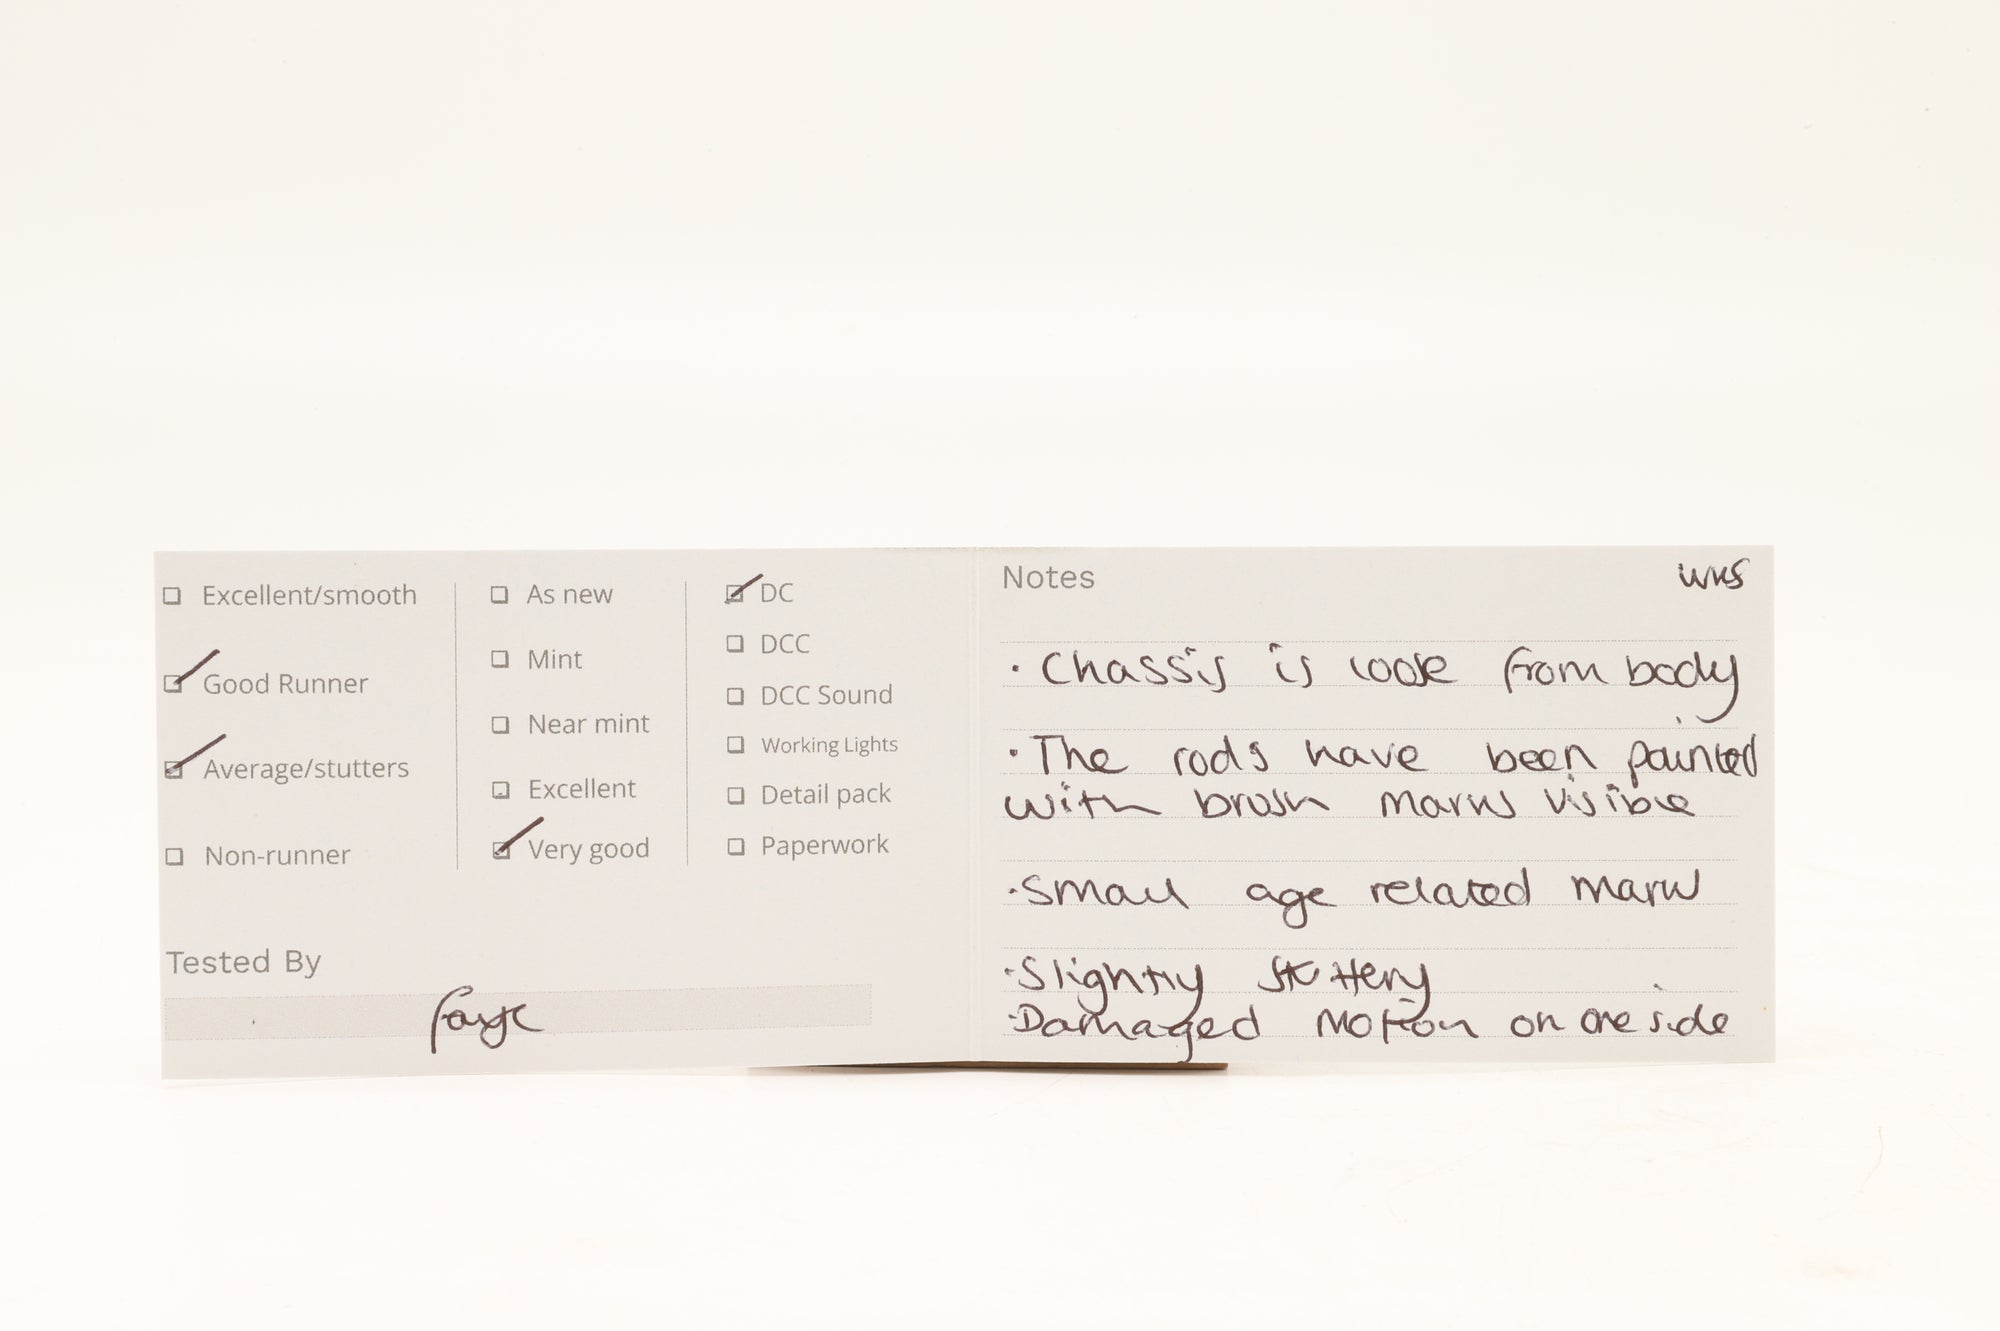 Excellent/smooth
Good Runner
Average/stutters
Non-runner
As new
Mint
Near mint
Excellent
Very good
DC
DCC
DCC Sound
Working Lights
Detail pack
Paperwork
Tested By
Faye
Notes
· Chassis is loose from body
· The rods have been painted
with brush marks visible
· Small age related marks
· Slightly stuttery
· Damaged motion on one side